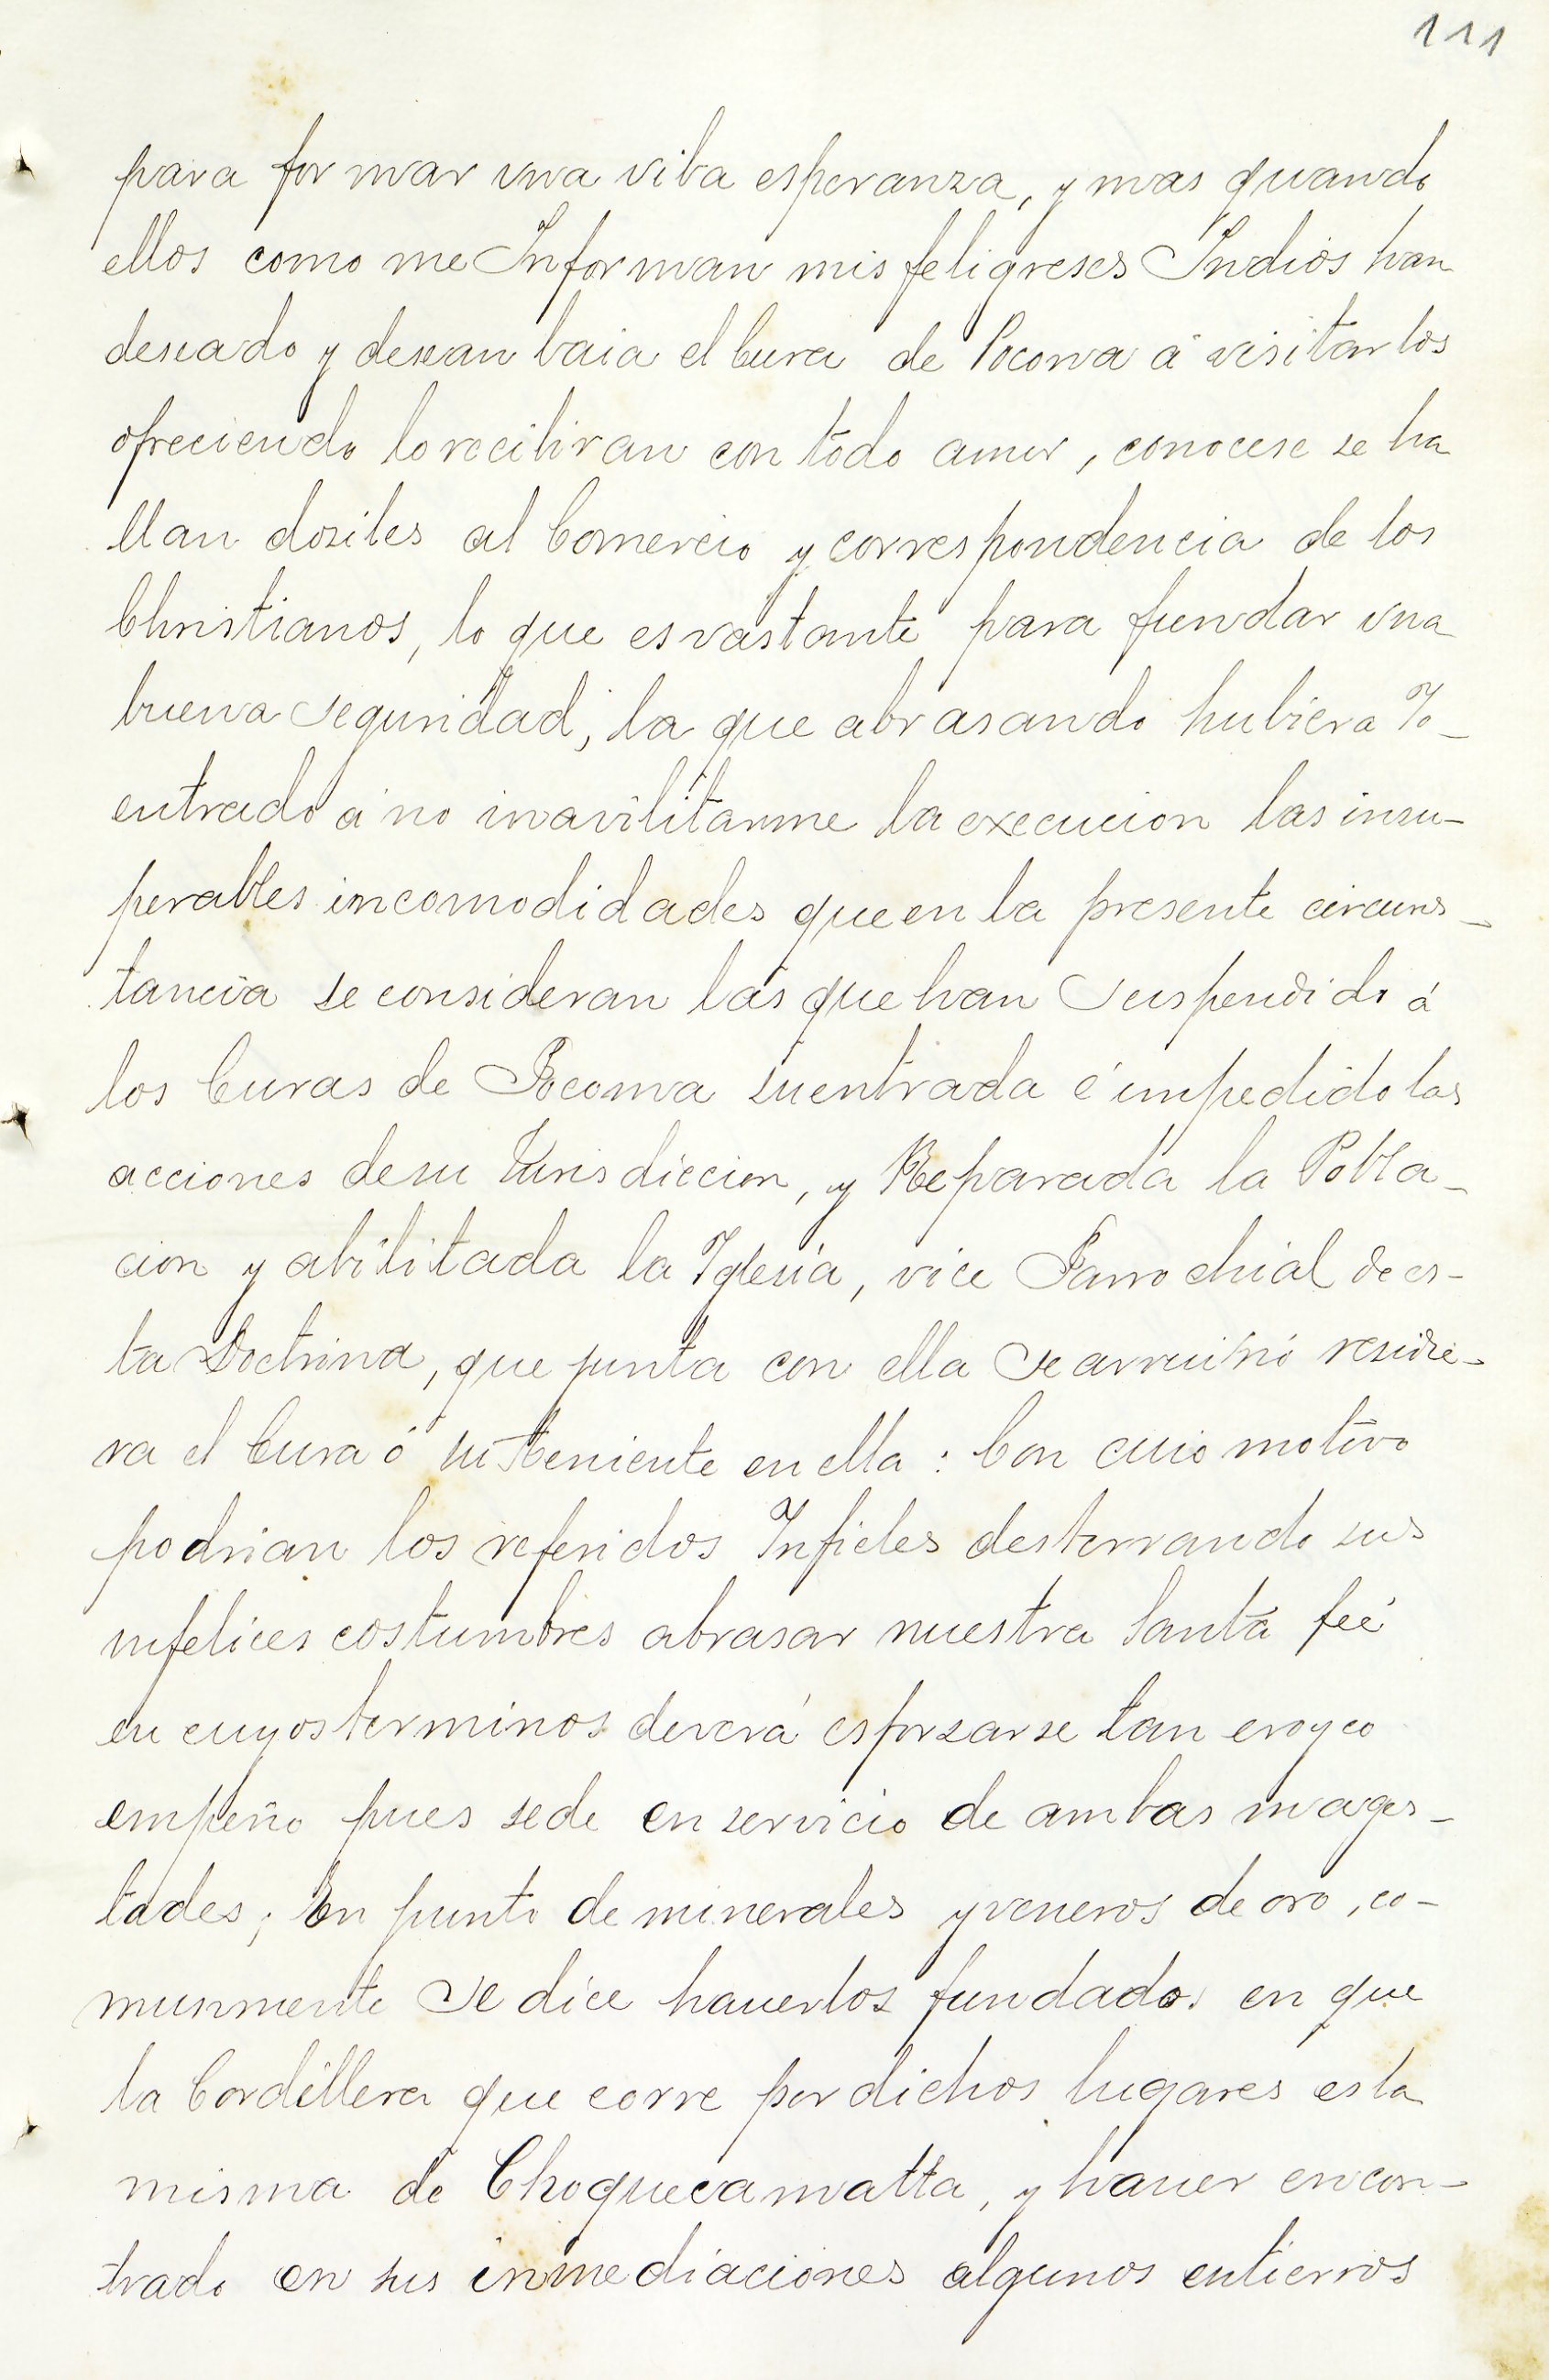 111
para formar vna viba esperanza, y mas quando
ellos como me Informan mis feligreses Indios han
deseado y desean baia el Cura de Pocona á visitarlos
ofreciendo lo reciviran con todo amor, conocese se ha
llan doziles al Comercio y correspondencia de los
Christianos, lo que es vastante para fundar vna
buena seguridad; la que abrasando hubiera Yo
entrado á no inavilitarme la execucion las insu-
perables incomodidades que en la presente circuns-
tancia se consideran las que han suspendido á
los Curas de Pocona su entrada é impedido las
acciones de su Jurisdiccion, y Reparada la Pobla-
cion y abilitada la Yglesia, vice Parrochial de es-
ta Doctrina, que junta con ella se arruinó residie-
ra el Cura ó su Teniente en ella: Con cuio motivo
podrian los referidos Infieles desterrando sus
infelices costumbres abrasar nuestra Santa feé
en cuyos terminos deverá esforsarse tan eroyco
empeño pues sede en servicio de ambas mages-
tades; En punto de minerales y veneros de oro, co-
munmente se dice hauerlos fundados en que
la Cordillera que corre por dichos lugares es la
misma de Choquecamatta, y hauer encon-
trado en sus inmediaciones algunos entierros